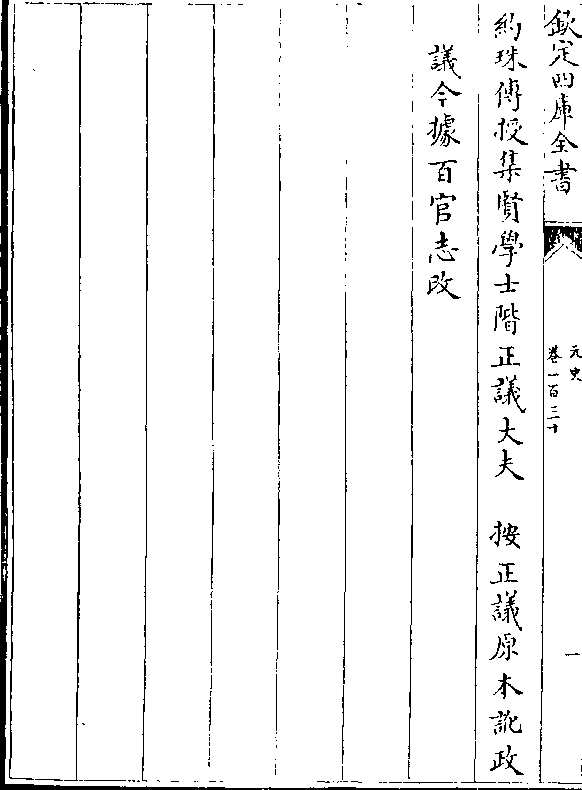 欽定四庫全書
元史
卷一百三十
一
約珠傳授集賢學士階正議大夫　按正議原本訛政
議今據百官志改